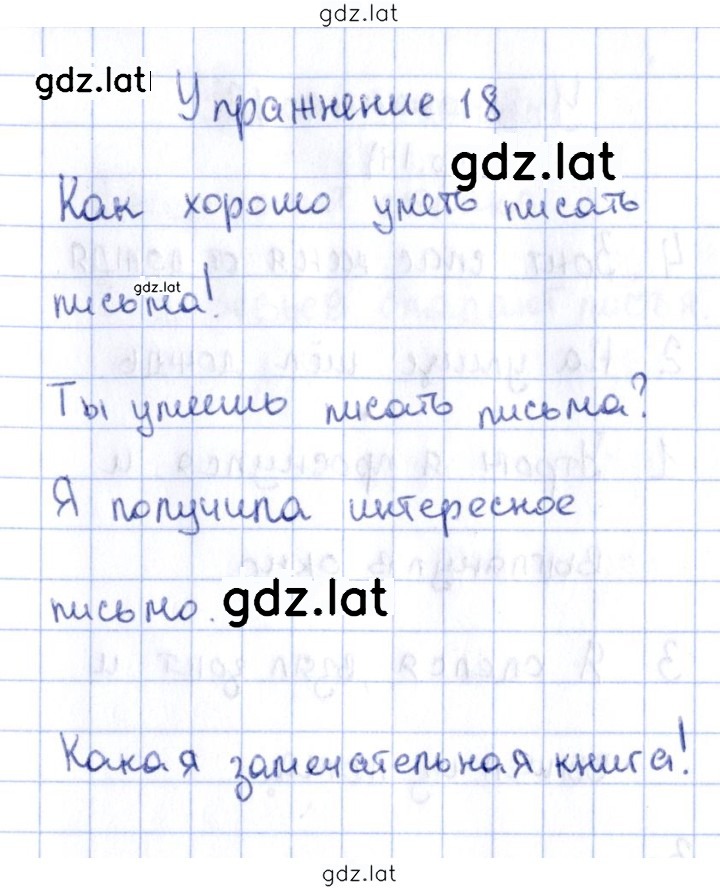 gdz.lat
gdz.lat
Упражнение 18
gdz.lat
Как хорошо уметь писать
gdz.lat
письма!
Ты умеешь писать письма?
Я получила интересное
письмо. gdz.lat
Какая замечательная книга!
gdz.lat